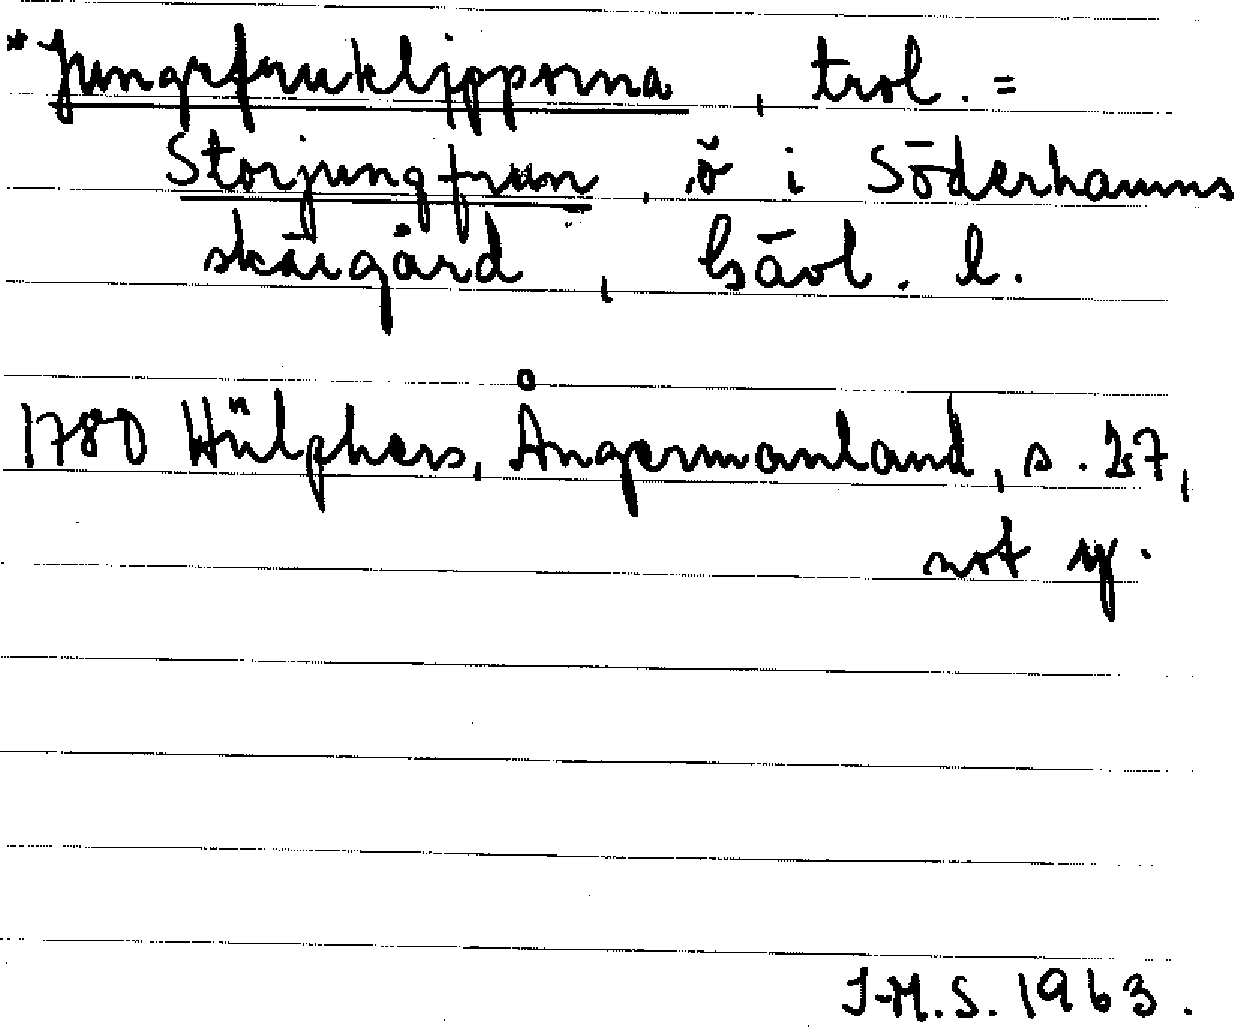 *Jungfruklipporna, trol. =
Storjungfrun, ö i Söderhamns
skärgård, Gävl. l.
1780 Hülphers, Ångermanland, s. 27,
not y.
J-M.S. 1963.